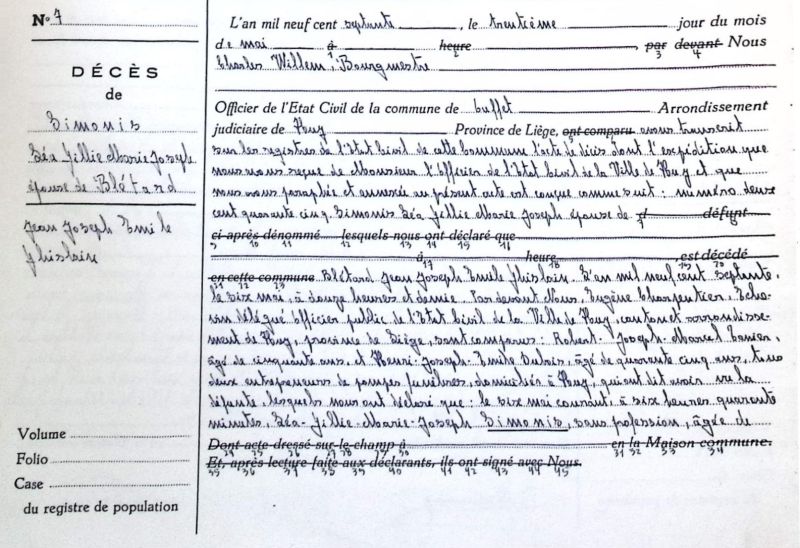 N° 7
DÉCÈS
de
Simonis
Léa Jillie Marie Joseph
épouse de Blétard
Jean Joseph Emile
Ghislain
Volume
Folio
Case
du registre de population
L'an mil neuf cent septante, le trentième jour du mois
de mai à heure, par devant Nous
1 2 3 4
Charles Willem, Bourgmestre
Officier de l'Etat Civil de la commune de Arrondissement
judiciaire de Huy Province de Liège, ont comparu avons transcrit
sur les registres de l'Etat Civil de cette commune l'acte de décès dont l'expédition que
nous avons reçue de Monsieur l'Officier de l'Etat Civil de la Ville de Huy et que
nous avons paraphée et annexée au présent acte est conçue comme suit : numéro deux
cent quarante cinq. Simonis Léa Jillie Marie Joseph épouse de défunt
ci-après dénommé lesquels nous ont déclaré que
9 10 11 12 13 14 15 16
à heure est décédé
17 18 19 20
en cette commune Blétard Jean Joseph Emile Ghislain. L'an mil neuf cent septante,
21 22 23
le six mai, à douze heures et demie. Par devant Nous, Eugène Charpentier, Eche-
vin délégué Officier public de l'Etat Civil de la Ville de Huy, canton et arrondisse-
ment de Huy, province de Liège, sont comparus : Robert-Joseph-Marcel
âgé de cinquante ans, et Henri-Joseph-Emile Dubois, âgé de quarante cinq ans, tous
deux entrepreneurs de pompes funèbres, domiciliés à Huy, qui ont dit avoir vu la
défunte, lesquels nous ont déclaré que : le six mai courant, à six heures quarante
minutes, Léa-Jillie-Marie-Joseph Simonis, sans profession, âgée de
Dont acte dressé sur-le-champ à en la Maison commune.
24 25 26 27 28 29 30 31 32 33 34
Et, après lecture faite aux déclarants, ils ont signé avec Nous.
35 36 37 38 39 40 41 42 43 44 45